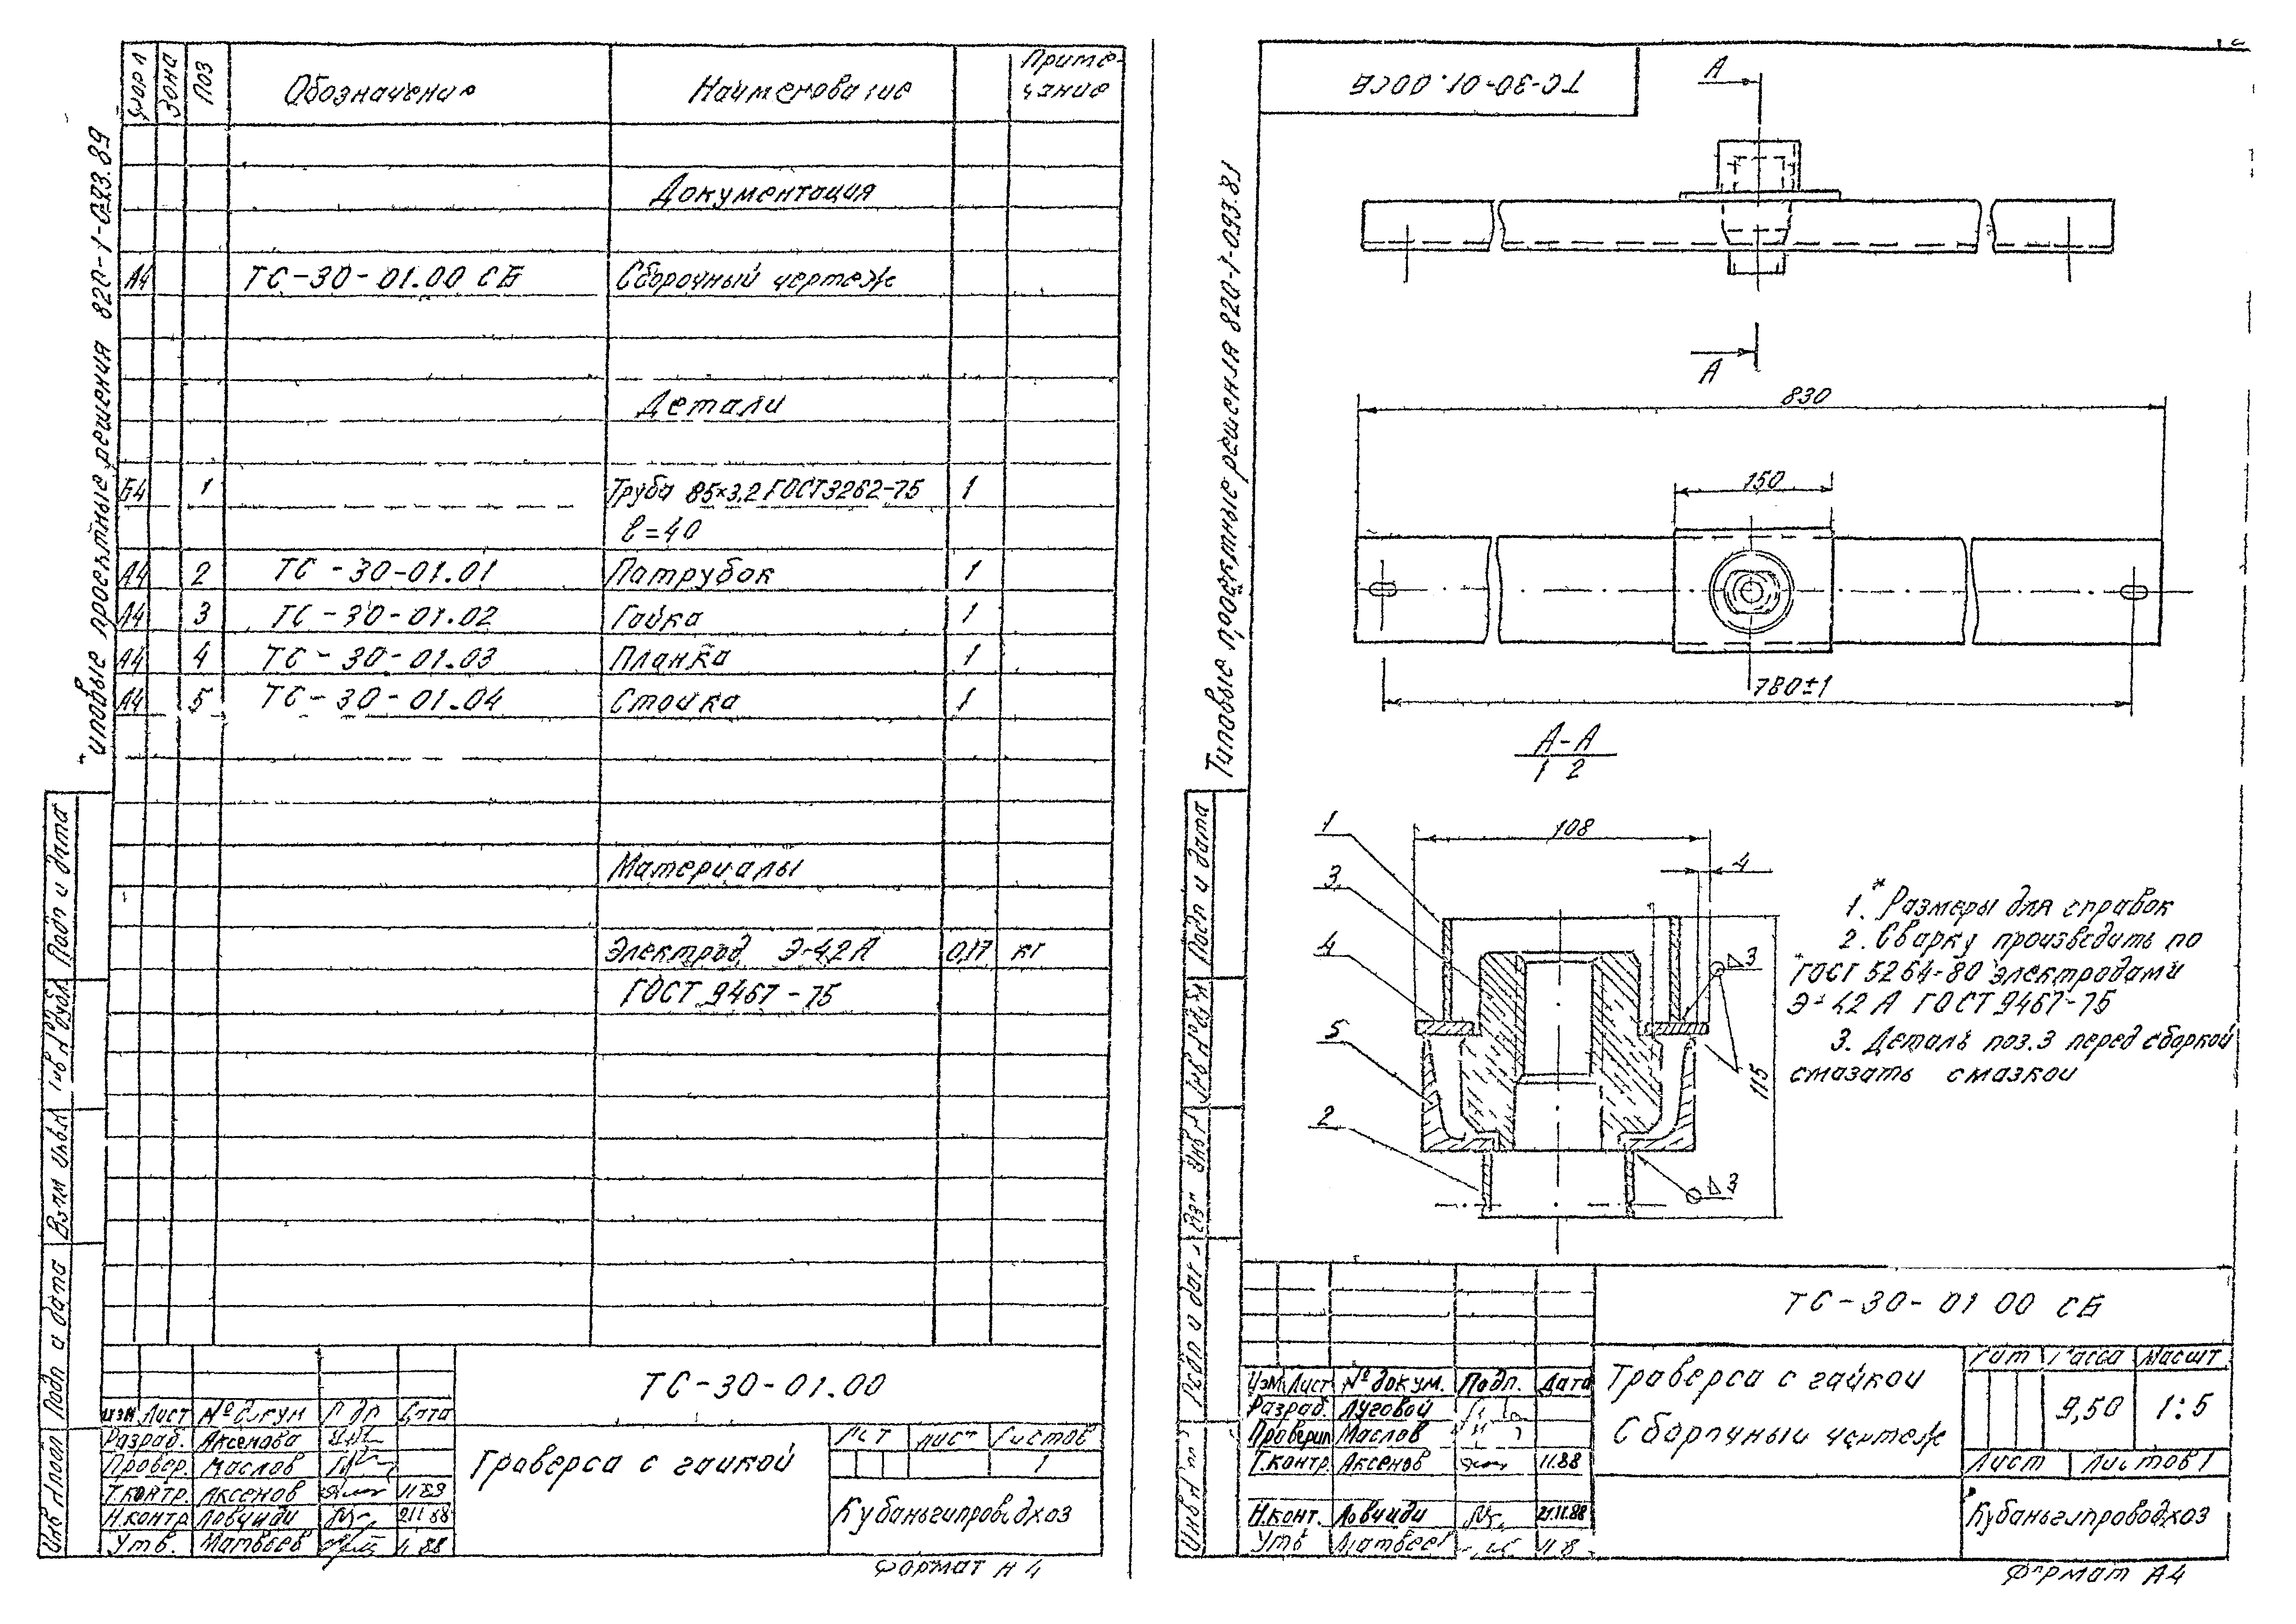 Зона
Поз
Обозначение
Наименование
Приме-
чание
Документация
А4 ТС-30-01.00 СБ Сборочный чертеж
Детали
Б4 1 Труба 85×3,2 ГОСТ 3262-75 1
ℓ=40
А4 2 ТС-30-01.01 Патрубок 1
А4 3 ТС-30-01.02 Гайка 1
А4 4 ТС-30-01.03 Планка 1
А4 5 ТС-30-01.04 Стойка 1
Материалы
Электрод Э-42А 0,17 кг
ГОСТ 9467-75
проектные решения
Подп и дата
Подп и дата
ТС-30-01.00
Изм Лист № докум
Дата
Разраб. Аксенова
Провер. Маслов
Т.контр. Аксенов
Н.контр Ловчиди
Утв. Матвеев
Траверса с гайкой
Лист
1
Кубаньгипроводхоз
Формат А4
ТС-30-01.00СБ
Типовые проектные решения 820-1-093.81
А
А
830
150
780±1
А-А
1 2
108
4
1
3
4
5
2
3
115
3
1.* Размеры для справок
2. Сварку производить по
ГОСТ 5264-80 электродами
Э-42А ГОСТ 9467-75
3. Деталь поз.3 перед сборкой
смазать смазкой
Подп и дата
ТС-30-01 00 СБ
Изм. Лист № докум. Подп. Дата
Разраб. Луговой
Проверил Маслов
Т.контр. Аксенов 11.88
Н.конт. Ловчиди 21.11.88
Утв
Траверса с гайкой
Сборочный чертеж
Масса Масшт.
9,50 1:5
Лист Листов 1
Кубаньгипроводхоз
Формат А4